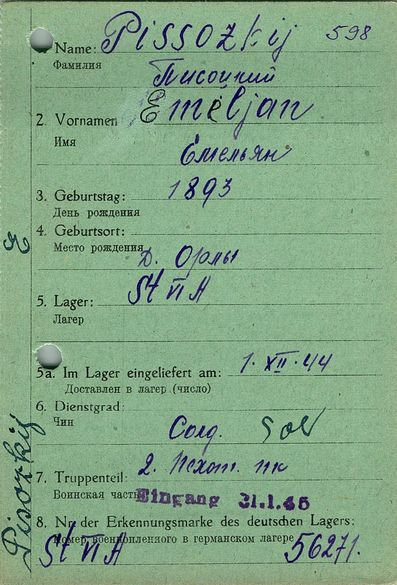 Name: Pissozkij 598
Фамилия
Писоцкий
2. Vornamen Emeljan
Имя
Емельян
3. Geburtstag: 1893
День рождения
4. Geburtsort:
Место рождения
Д. Орлы
5. Lager: St VI A
Лагерь
5a. Im Lager eingeliefert am: 1. XII. 44
Доставлен в лагерь (число)
6. Dienstgrad:
Чин
Солд. Sol
7. Truppenteil: 2. Пехот. пк
Воинская часть Eingang 31.1.45
8. Nr der Erkennungsmarke des deutschen Lagers:
Номер военнопленного в германском лагере
St VI A 56271.
E
Pisozkij